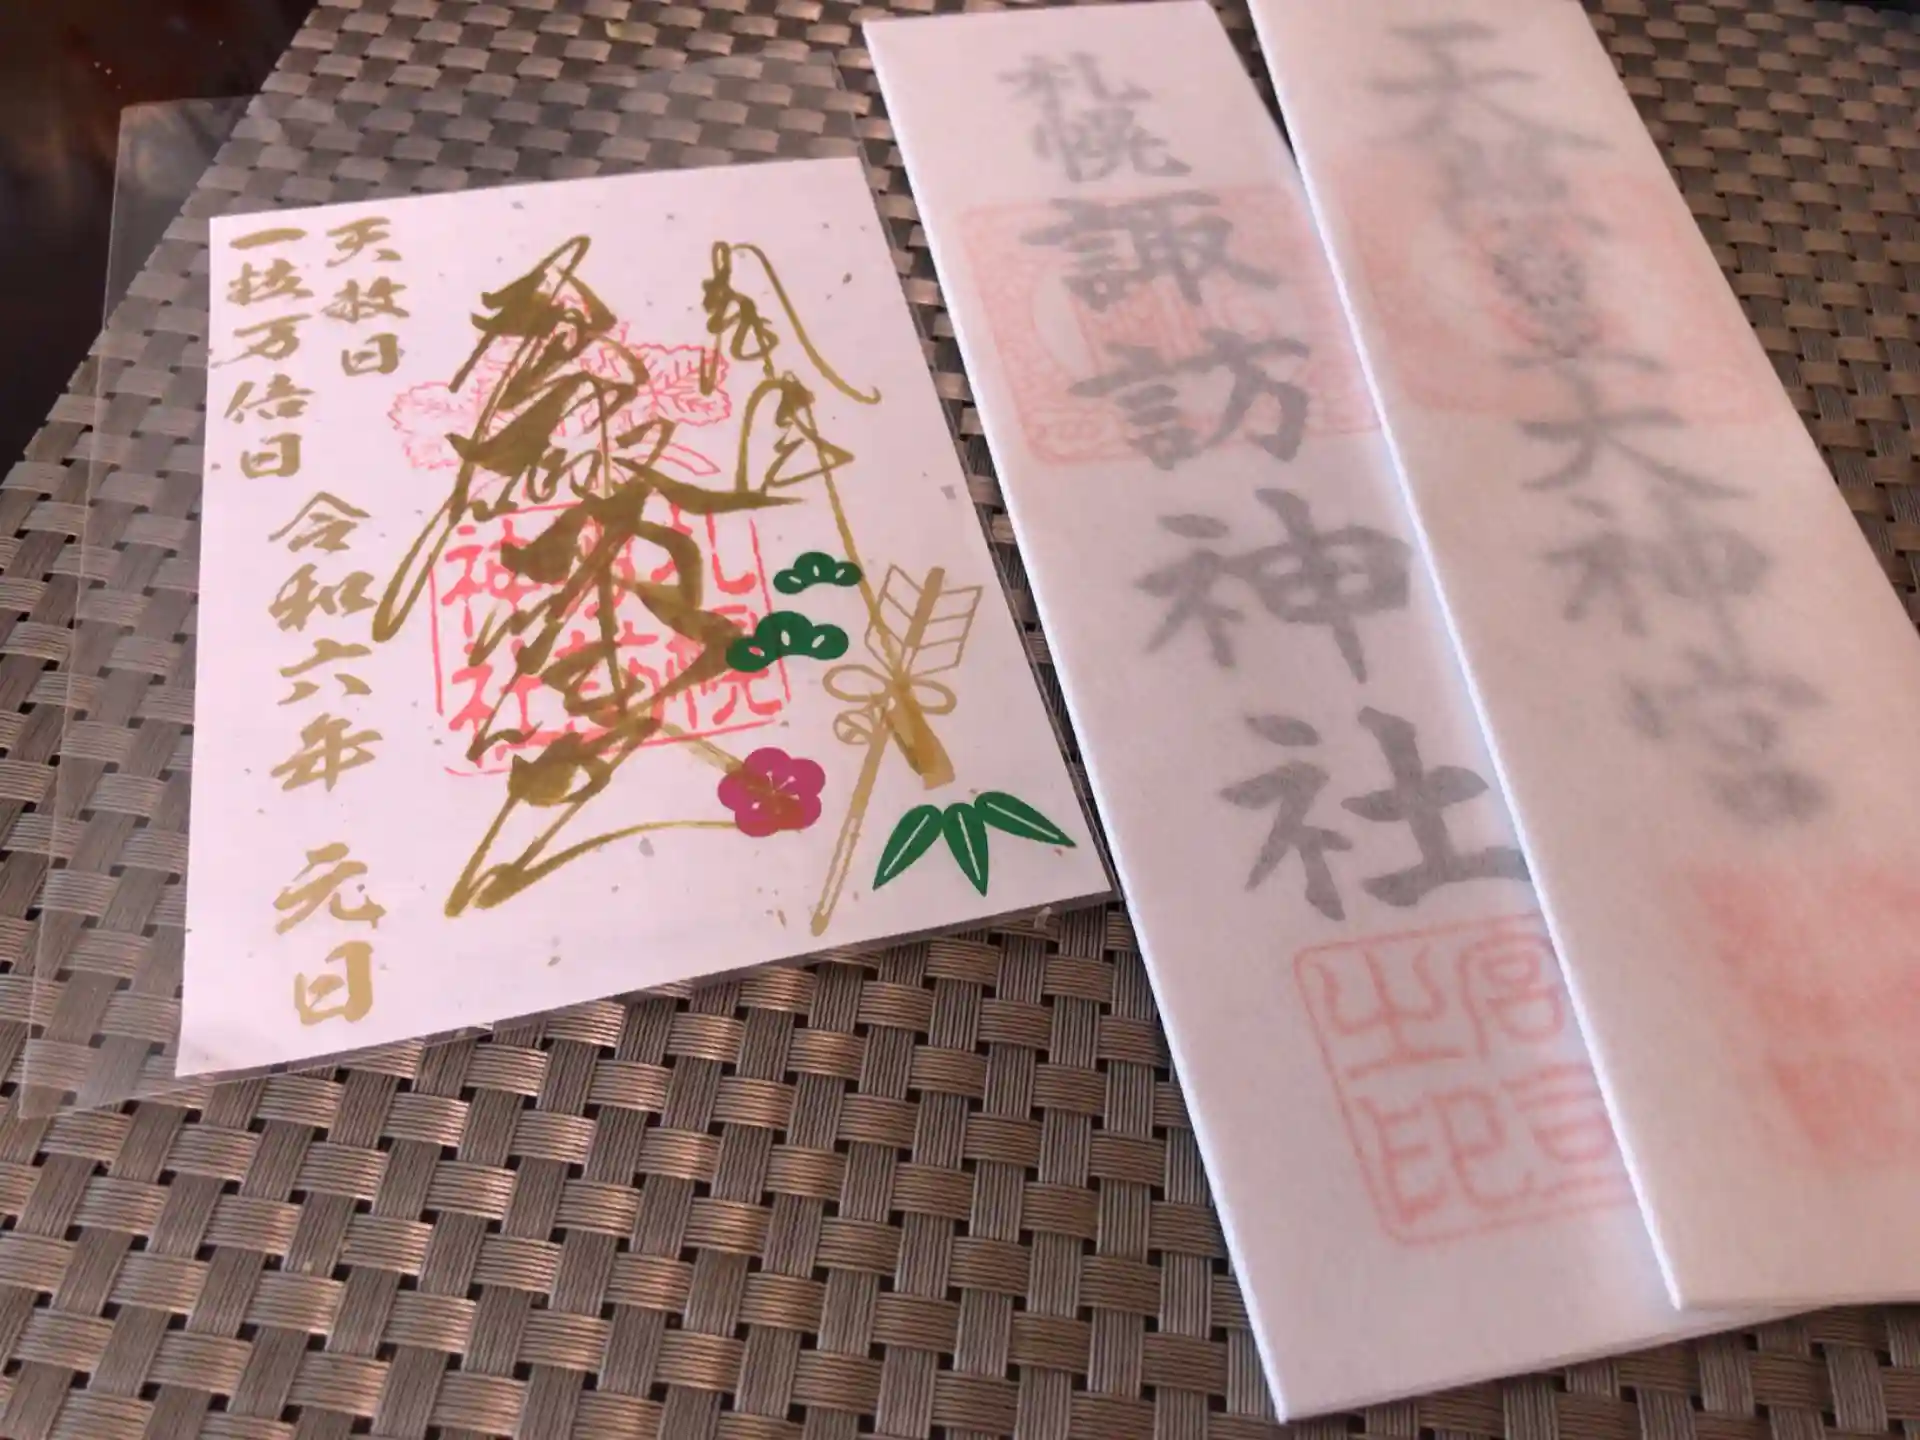 天照皇大神宮
札幌諏訪神社
宮璽
之印
奉拝
札幌
諏訪
神社
天赦日
一粒万倍日
令和六年 元日